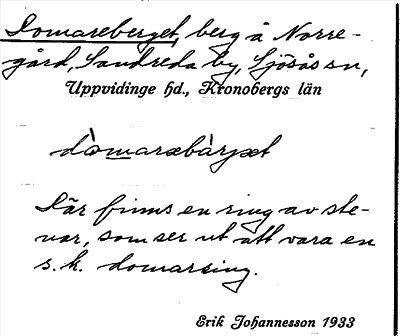 Domareberget, berg å Norre-
gård, Sandreda by, Sjösås sn,
Uppvidinge hd., Kronobergs län
dòmarəbàrjət
Där finns en ring av ste-
nar, som ser ut att vara en
s.k. domarring.
Erik Johannesson 1933